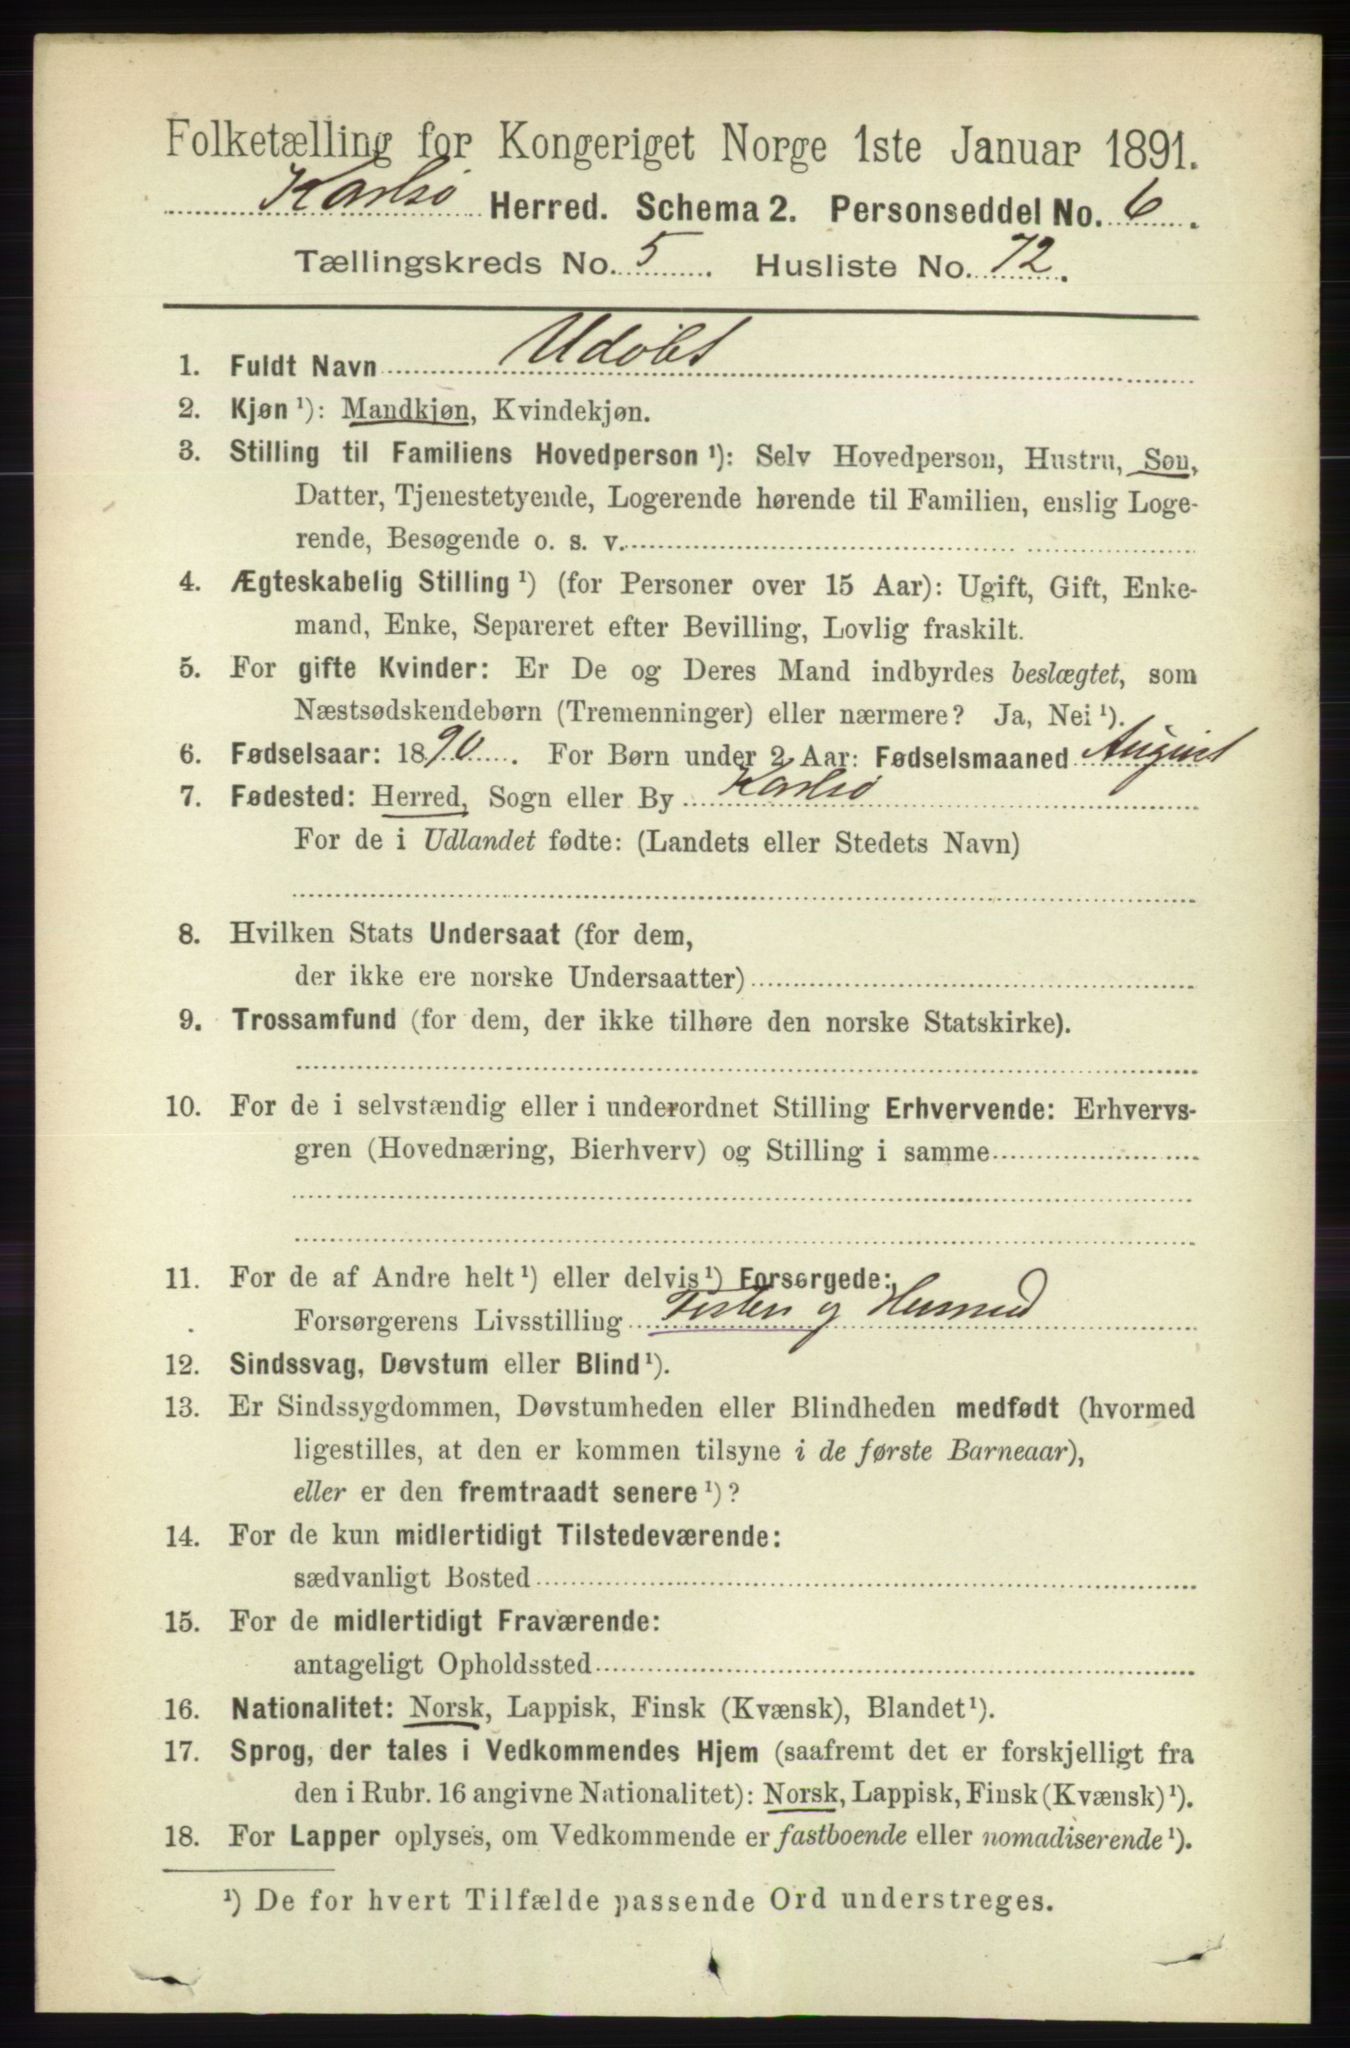 Folketælling for Kongeriget Norge 1ste Januar 1891.
Karlsø Herred. Schema 2. Personseddel No. 6.
Tællingskreds No. 5. Husliste No. 72.
1. Fuldt Navn Udøbt
2. Kjøn ¹): Mandkjøn, Kvindekjøn.
3. Stilling til Familiens Hovedperson ¹): Selv Hovedperson, Hustru, Søn,
Datter, Tjenestetyende, Logerende hørende til Familien, enslig Loge-
rende, Besøgende o. s. v.
4. Ægteskabelig Stilling ¹) (for Personer over 15 Aar): Ugift, Gift, Enke-
mand, Enke, Separeret efter Bevilling, Lovlig fraskilt.
5. For gifte Kvinder: Er De og Deres Mand indbyrdes beslægtet, som
Næstsødskendebørn (Tremenninger) eller nærmere? Ja, Nei ¹).
6. Fødselsaar: 1890. For Børn under 2 Aar: Fødselsmaaned August
7. Fødested: Herred, Sogn eller By Karlsø
For de i Udlandet fødte: (Landets eller Stedets Navn)
8. Hvilken Stats Undersaat (for dem,
der ikke ere norske Undersaatter)
9. Trossamfund (for dem, der ikke tilhøre den norske Statskirke).
10. For de i selvstændig eller i underordnet Stilling Erhvervende: Erhvervs-
gren (Hovednæring, Bierhverv) og Stilling i samme
11. For de af Andre helt ¹) eller delvis ¹) Forsørgede:
Forsørgerens Livsstilling Fisker og Husmd
12. Sindssvag, Døvstum eller Blind ¹).
13. Er Sindssygdommen, Døvstumheden eller Blindheden medfødt (hvormed
ligestilles, at den er kommen tilsyne i de første Barneaar),
eller er den fremtraadt senere ¹)?
14. For de kun midlertidigt Tilstedeværende:
sædvanligt Bosted
15. For de midlertidigt Fraværende:
antageligt Opholdssted
16. Nationalitet: Norsk, Lappisk, Finsk (Kvænsk), Blandet ¹).
17. Sprog, der tales i Vedkommendes Hjem (saafremt det er forskjelligt fra
den i Rubr. 16 angivne Nationalitet): Norsk, Lappisk, Finsk (Kvænsk) ¹).
18. For Lapper oplyses, om Vedkommende er fastboende eller nomadiserende ¹).
¹) De for hvert Tilfælde passende Ord understreges.